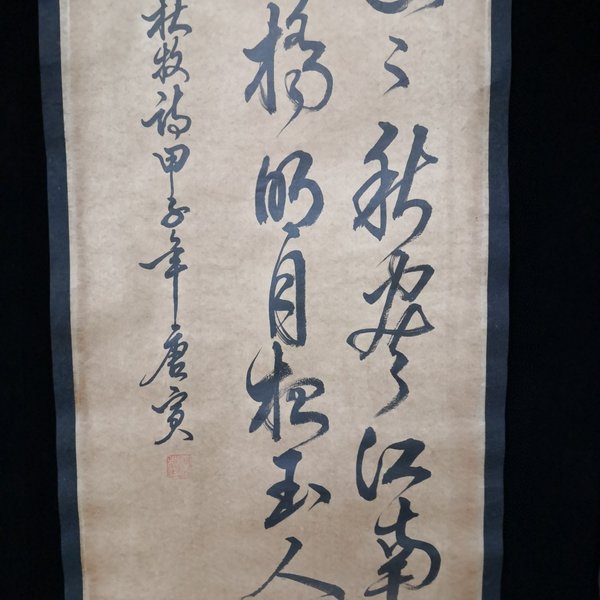 〻秋盡江南
橋明月夜玉人
杜牧詩甲子年唐寅